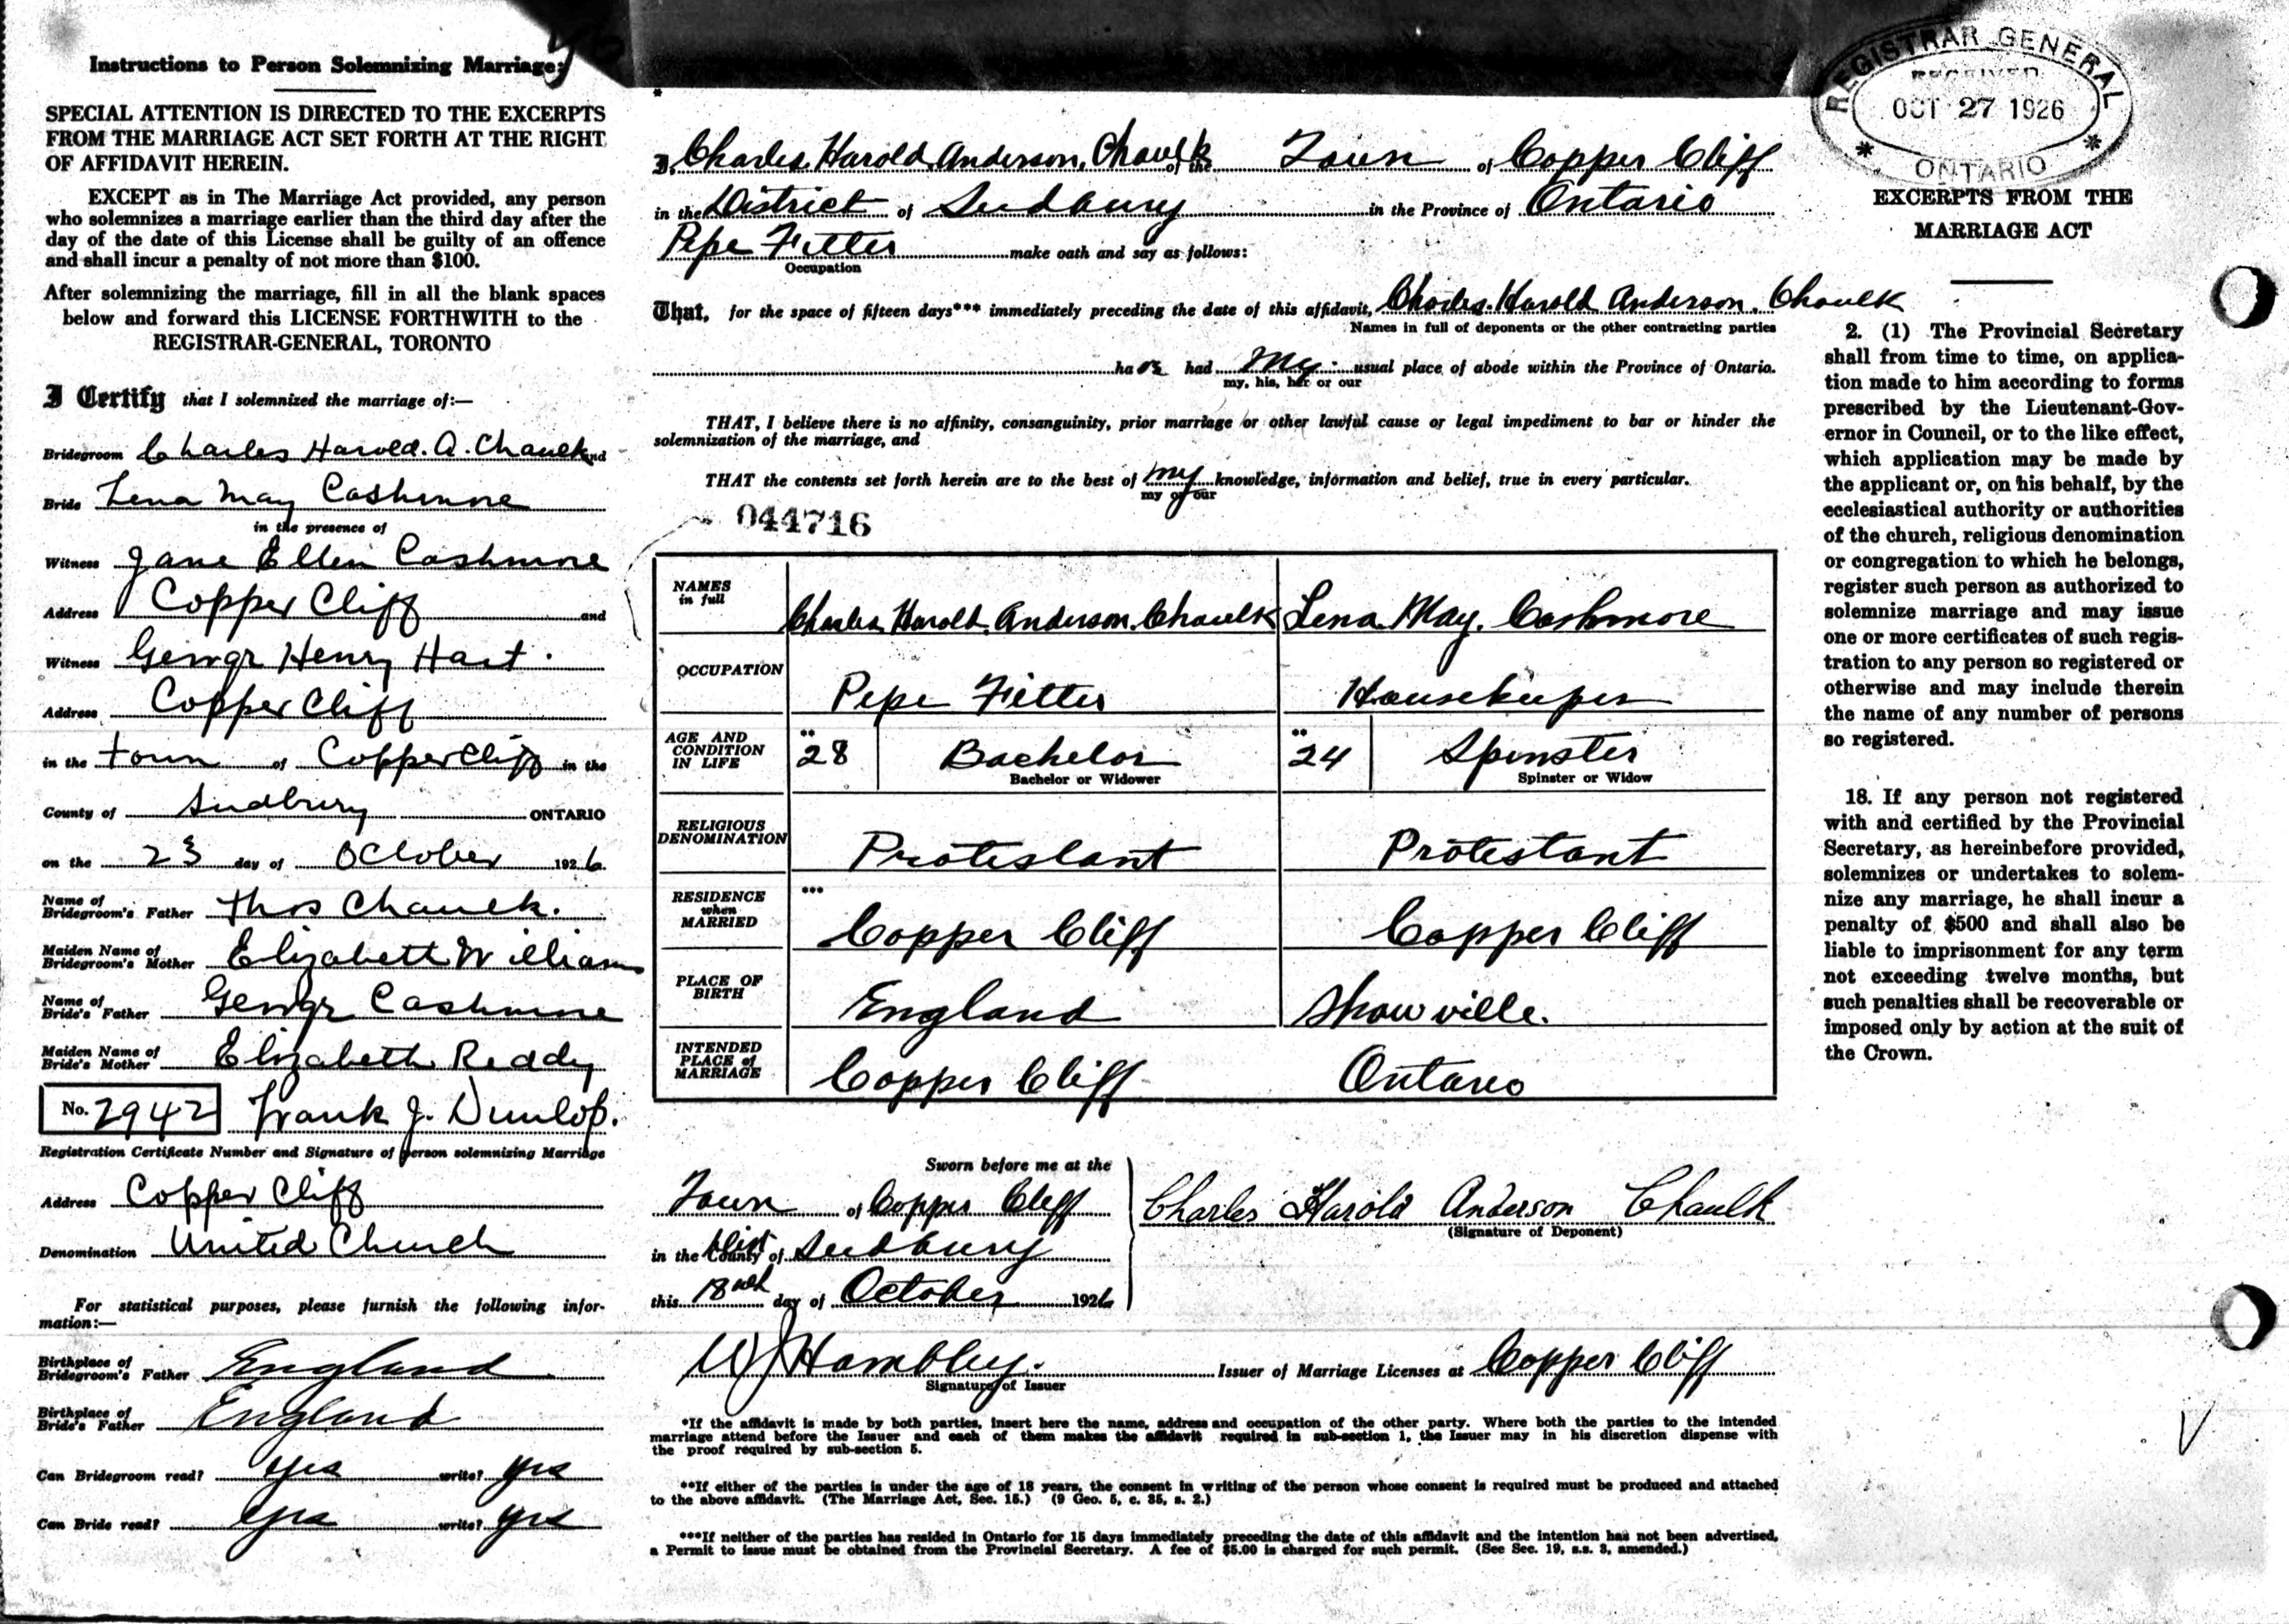 Instructions to Person Solemnizing Marriage:
SPECIAL ATTENTION IS DIRECTED TO THE EXCERPTS
FROM THE MARRIAGE ACT SET FORTH AT THE RIGHT
OF AFFIDAVIT HEREIN.
EXCEPT as in The Marriage Act provided, any person
who solemnizes a marriage earlier than the third day after the
day of the date of this License shall be guilty of an offence
and shall incur a penalty of not more than $100.
After solemnizing the marriage, fill in all the blank spaces
below and forward this LICENSE FORTHWITH to the
REGISTRAR-GENERAL, TORONTO
I Certify that I solemnized the marriage of:—
Bridegroom Charles Harold. A. Chaulk and
Bride Lena May Cashmore
in the presence of
Witness Jane Ellen Cashmore
Address Copper Cliff and
Witness George Henry Hart.
Address Copper Cliff
in the town of Copper Cliff in the
County of Sudbury ONTARIO
on the 23 day of October 1926.
Name of Bridegroom's Father Thos Chaulk.
Maiden Name of Bridegroom's Mother Elizabeth Williams
Name of Bride's Father George Cashmore
Maiden Name of Bride's Mother Elizabeth Reddy
No. 2942 Frank J. Dunlop.
Registration Certificate Number and Signature of person solemnizing Marriage
Address Copper Cliff
Denomination United Church
For statistical purposes, please furnish the following infor-
mation:—
Birthplace of Bridegroom's Father England
Birthplace of Bride's Father England
Can Bridegroom read? yes write? yes
Can Bride read? yes write? yes
*
I, Charles Harold Anderson, Chaulk of the Town of Copper Cliff
in the District of Sudbury in the Province of Ontario
Pepe Fitter make oath and say as follows:
Occupation
That, for the space of fifteen days*** immediately preceding the date of this affidavit, Charles Harold Anderson. Chaulk
Names in full of deponents or the other contracting parties
has had My usual place of abode within the Province of Ontario.
my, his, her or our
THAT, I believe there is no affinity, consanguinity, prior marriage or other lawful cause or legal impediment to bar or hinder the
solemnization of the marriage, and
THAT the contents set forth herein are to the best of my knowledge, information and belief, true in every particular.
my or our
044716
NAMES in full Charles Harold Anderson. Chaulk Lena May. Cashmore
OCCUPATION Pepe Fitter Housekeeper
AGE AND CONDITION IN LIFE **28 Bachelor **24 Spinster
Bachelor or Widower Spinster or Widow
RELIGIOUS DENOMINATION Protestant Protestant
RESIDENCE when MARRIED *** Copper Cliff Copper Cliff
PLACE OF BIRTH England Shawville.
INTENDED PLACE of MARRIAGE Copper Cliff Ontario
Sworn before me at the
Town of Copper Cliff
in the Dist County of Sudbury
this 18 day of October 1926
Charles Harold Anderson Chaulk
(Signature of Deponent)
W J Hambley. Issuer of Marriage Licenses at Copper Cliff
Signature of Issuer
*If the affidavit is made by both parties, insert here the name, address and occupation of the other party. Where both the parties to the intended
marriage attend before the Issuer and each of them makes the affidavit required in sub-section 1, the Issuer may in his discretion dispense with
the proof required by sub-section 5.
**If either of the parties is under the age of 18 years, the consent in writing of the person whose consent is required must be produced and attached
to the above affidavit. (The Marriage Act, Sec. 15.) (9 Geo. 5, c. 35, s. 2.)
***If neither of the parties has resided in Ontario for 15 days immediately preceding the date of this affidavit and the intention has not been advertised,
a Permit to issue must be obtained from the Provincial Secretary. A fee of $5.00 is charged for such permit. (See Sec. 19, s.s. 3, amended.)
REGISTRAR GENERAL
RECEIVED
OCT 27 1926
* ONTARIO *
EXCERPTS FROM THE
MARRIAGE ACT
2. (1) The Provincial Secretary
shall from time to time, on applica-
tion made to him according to forms
prescribed by the Lieutenant-Gov-
ernor in Council, or to the like effect,
which application may be made by
the applicant or, on his behalf, by the
ecclesiastical authority or authorities
of the church, religious denomination
or congregation to which he belongs,
register such person as authorized to
solemnize marriage and may issue
one or more certificates of such regis-
tration to any person so registered or
otherwise and may include therein
the name of any number of persons
so registered.
18. If any person not registered
with and certified by the Provincial
Secretary, as hereinbefore provided,
solemnizes or undertakes to solem-
nize any marriage, he shall incur a
penalty of $500 and shall also be
liable to imprisonment for any term
not exceeding twelve months, but
such penalties shall be recoverable or
imposed only by action at the suit of
the Crown.